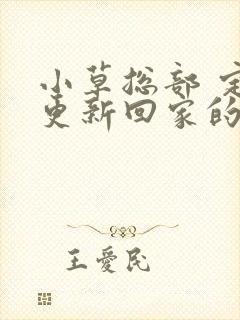 小草总部 定
更新回家的
王爱民